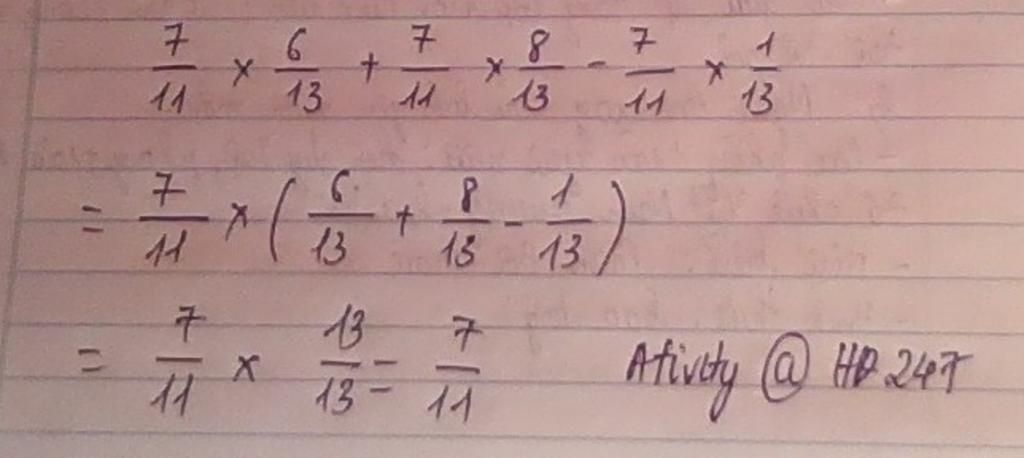 7/11 × 6/13 + 7/11 × 8/13 - 7/11 × 1/13
= 7/11 × (6/13 + 8/13 - 1/13)
= 7/11 × 13/13 = 7/11 Ativity @ HD 247